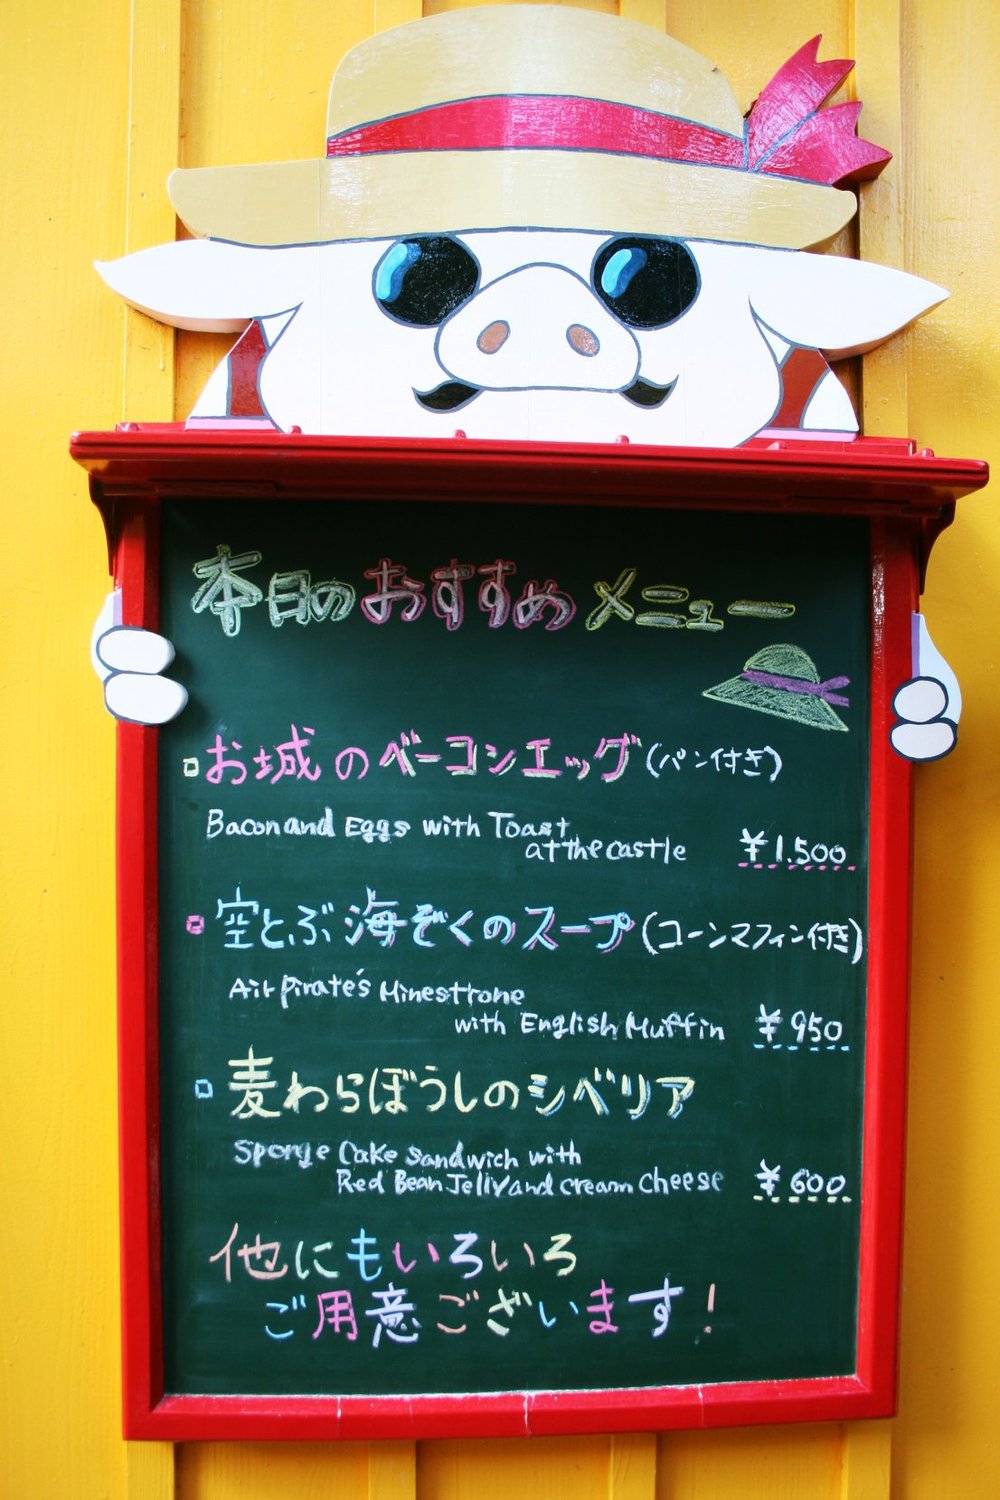 本日のおすすめメニュー
お城のベーコンエッグ(パン付き)
Bacon and Eggs with Toast
at the castle ¥1.500
空とぶ海ぞくのスープ(コーンマフィン付き)
Air pirate's Minestrone
with English Muffin ¥950
麦わらぼうしのシベリア
Sponge Cake sandwich with
Red Bean Jelly and cream cheese ¥600
他にもいろいろ
ご用意ございます!